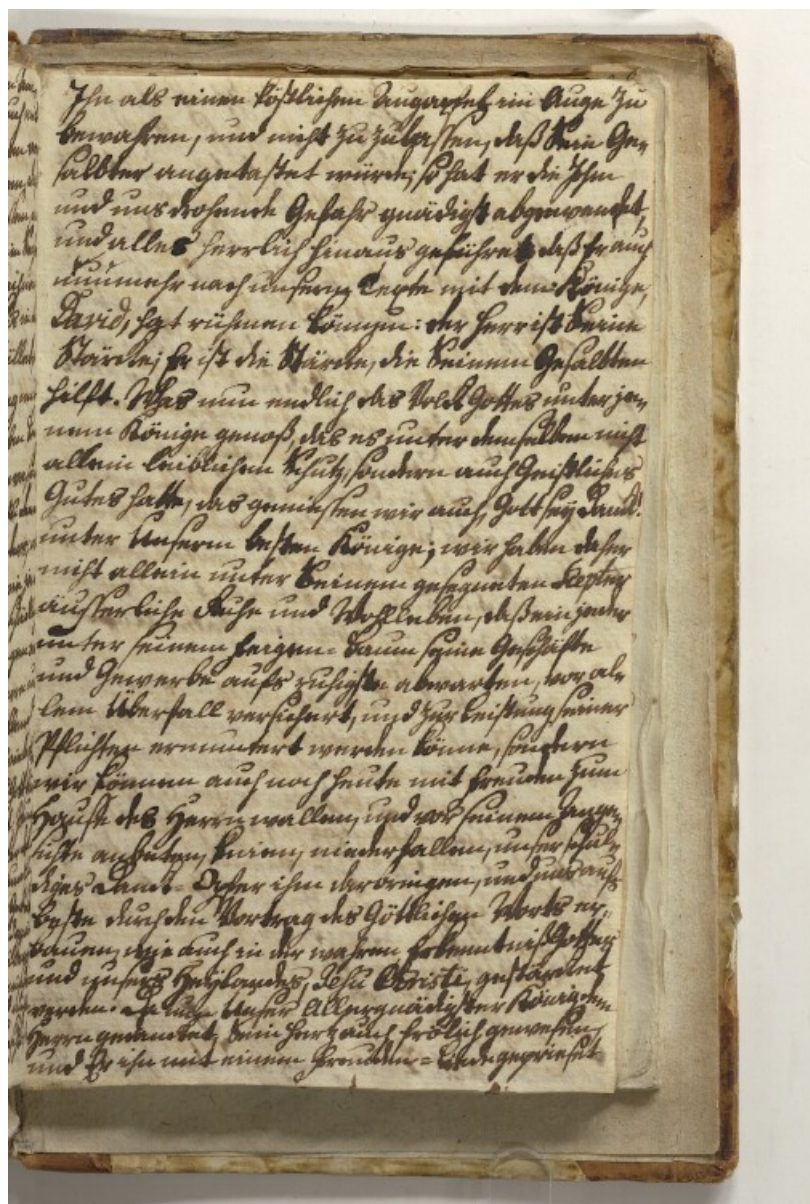 Ihn als einen köstlichen Augapfel im Auge zu
bewahren, und nicht zu zulassen, daß Sein Ge-
salbter angetastet würde; so hat er die Ihm
und uns drohende Gefahr gnädigst abgewendet,
und alles herrlich hinaus geführet, daß Er auch
nunmehr nach unserm Texte mit dem Könige,
David, hat rühmen können: der Herr ist Seine
Stärcke; Er ist die Stärcke, die Seinem Gesalbten
hilft. Was nun endlich das Volck Gottes unter je-
nem Könige genoß, das es unter demselben nicht
allein leiblichen Schutz, sondern auch Geistliches
Gutes hatte, das geniessen wir auch, Gott sey Danck!
unter Unserm besten Könige; wir haben daher
nicht allein unter Seinem gesegneten Scepter
äusserliche Ruhe und Wohlleben, daß ein jeder
unter seinem Feigen-Baum seine Geschäfte
und Gewerbe aufs ruhigste abwarten, vor al-
lem Überfall versichert, und zur Leistung seiner
Pflichten ermuntert werden könne, sondern
wir können auch noch heute mit Freuden zum
Hause des Herrn wallen, und vor seinem Ange-
sichte anbeten, knien, niederfallen, unser schul-
diges Danck-Opfer ihm darbringen, und uns aufs
beste durch den Vortrag des Göttlichen Worts er-
bauen, wie auch in der wahren Erkenntniß Gottes
und unsers Heylandes, Jesu Christi, gestärcket
werden. Da nun Unser Allergnädigster König dem
Herrn gedancket, Sein Hertz auch frölich gewesen,
und Er ihn mit einem Freuden-Liede gepriesen